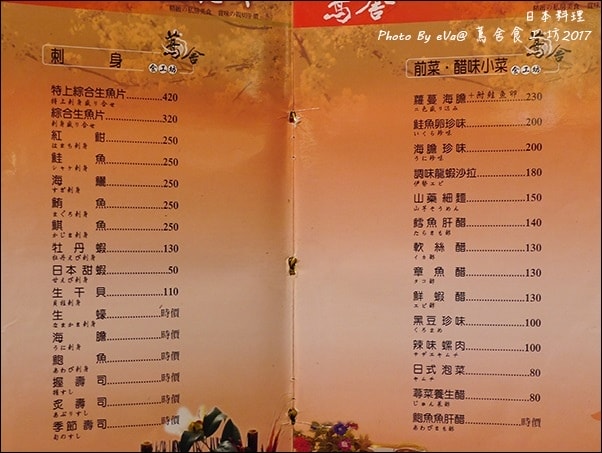 日本料理
Photo By eVa@ 蔦舍食工坊2017
蔦舍
蔦舍
食工坊
刺 身
特上綜合生魚片 420
特上刺身盛り合せ
綜合生魚片 320
刺身盛り合せ
紅魽 250
はまち刺身
鮭魚 250
シャケ刺身
海鱺 250
すぎ刺身
鮪魚 250
まぐろ刺身
鯕魚 250
かじき刺身
牡丹蝦 130
牡丹えび刺身
日本甜蝦 50
甘えび刺身
生干貝 110
貝柱刺身
生蠔 時價
なまかき刺身
海膽 時價
うに刺身
鮑魚 時價
あわび刺身
握壽司 時價
握すし
炙壽司 時價
あぶりすし
季節壽司 時價
旬のすし
蔦舍
食工坊
前菜・醋味小菜
蘿蔓海膽+附鮭魚卵 230
二色盛り込み
鮭魚卵珍味 200
いくら珍味
海膽珍味 200
うに珍味
調味龍蝦沙拉 180
伊勢エビ
山藥細麵 150
山芋そうめん
鱈魚肝醋 140
たらきも酢
軟絲醋 130
イカ酢
章魚醋 130
タコ酢
鮮蝦醋 130
エビ酢
黑豆珍味 100
くろまめ
辣味螺肉 100
サザエキムチ
日式泡菜 80
キムチ
蓴菜養生醋 80
じゅん菜酢
鮑魚魚肝醋 時價
あわびきも酢